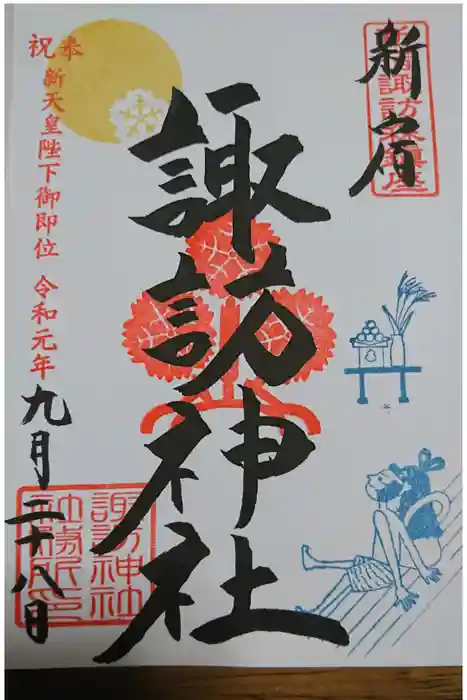 新宿
諏訪神社
奉祝 新天皇陛下御即位 令和元年
九月二十八日
諏訪神社
社務所印